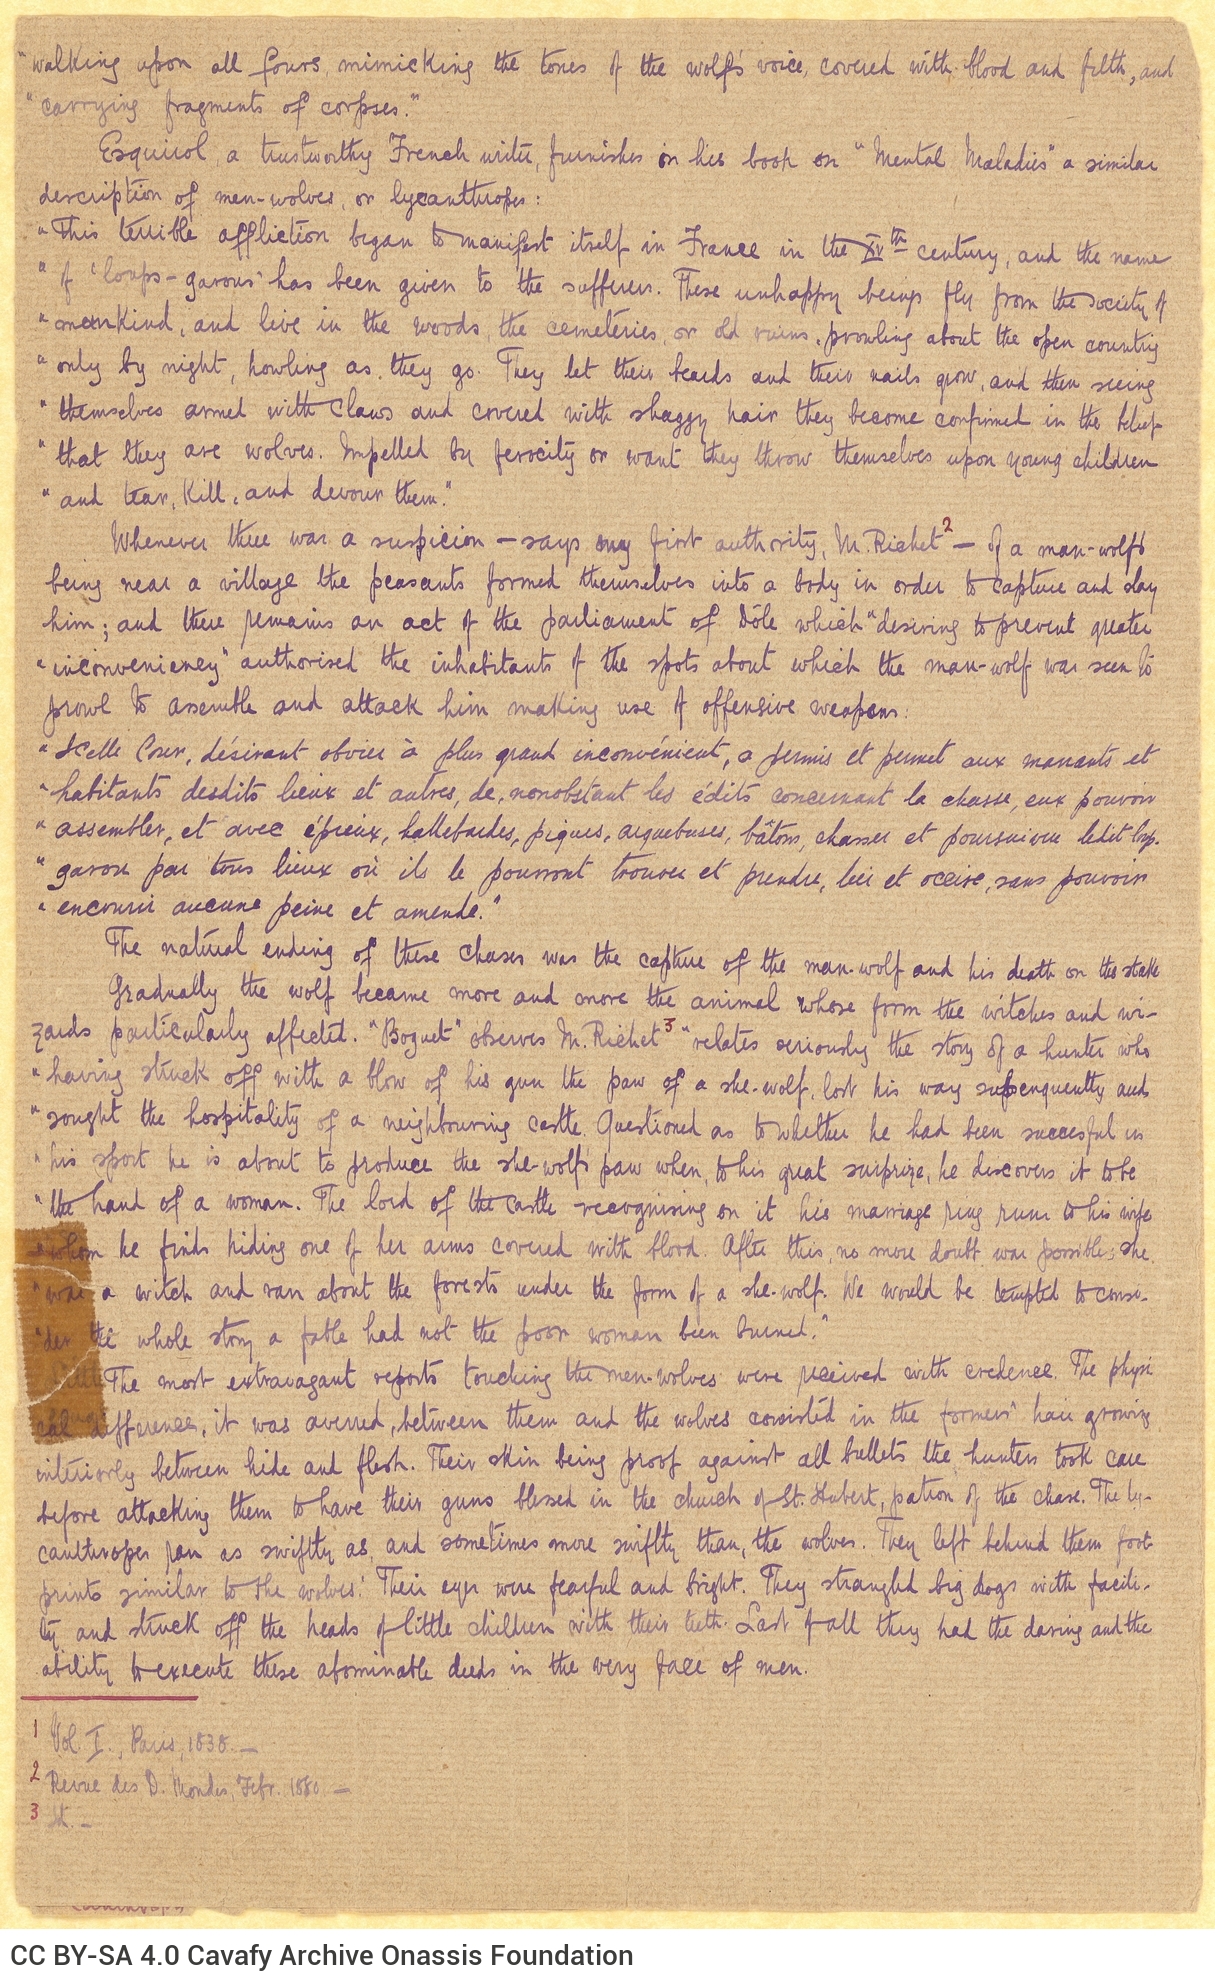 "walking upon all fours, mimicking the tones of the wolf's voice, covered with blood and filth, and
"carrying fragments of corpses."
Esquirol, a trustworthy French writer, furnishes in his book on "Mental Maladies" a similar
description of men-wolves, or lycanthropes:
"This terrible affliction began to manifest itself in France in the XVth century, and the name
"of 'loups-garous' has been given to the sufferers. These unhappy beings fly from the society of
"mankind, and live in the woods, the cemeteries, or old ruins, prowling about the open country
"only by night, howling as they go. They let their beards and their nails grow, and then seeing
"themselves armed with claws and covered with shaggy hair they become confirmed in the belief
"that they are wolves. Impelled by ferocity or want they throw themselves upon young children
"and tear, kill, and devour them."
Whenever there was a suspicion — says my first authority, M. Richet2 — of a man-wolf's
being near a village the peasants formed themselves into a body in order to capture and slay
him; and there remains an act of the parliament of Dôle which "desiring to prevent greater
"inconveniency" authorised the inhabitants of the spots about which the man-wolf was seen to
prowl to assemble and attack him making use of offensive weapons:
"Icelle Cour, désirant obvier à plus grand inconvénient, a permis et permet aux manants et
"habitants desdits lieux et autres, de, nonobstant les édits concernant la chasse, eux pouvoir
"assembler, et avec épieux, hallebardes, piques, arquebuses, bâtons, chasser et poursuivre ledit loup-
"garou par tous lieux où ils le pourront trouver et prendre, lier et occire, sans pouvoir
"encourir aucune peine et amende."
The natural ending of these chases was the capture of the man-wolf and his death on the stake
Gradually the wolf became more and more the animal whose form the witches and wi-
zards particularly affected. "Boguet" observes M. Richet3 "relates seriously the story of a hunter who
"having struck off with a blow of his gun the paw of a she-wolf, lost his way subsenquently and
"sought the hospitality of a neighbouring castle. Questioned as to whether he had been succesful in
"his sport he is about to produce the she-wolf's paw when, to his great surprize, he discovers it to be
"the hand of a woman. The lord of the castle recognising on it his marriage ring runs to his wife
"whom he finds hiding one of her arms covered with blood. After this, no more doubt was possible; she
"was a witch and ran about the forests under the form of a she-wolf. We would be tempted to consi-
"der the whole story a fable had not the poor woman been burned."
The most extravagant reports touching the men-wolves were received with credence. The physi
cal difference, it was averred, between them and the wolves consisted in the formers' hair growing
interiorly between hide and flesh. Their skin being proof against all bullets the hunters took care
before attacking them to have their guns blessed in the church of St. Hubert, patron of the chase. The ly-
canthropes ran as swiftly as, and sometimes more swiftly than, the wolves. They left behind them foot
prints similar to the wolves'. Their eyes were fearful and bright. They strangled big dogs with facili-
ty and struck off the heads of little children with their teeth. Last of all they had the daring and the
ability to execute these abominable deeds in the very face of men.
1 Vol. I., Paris, 1838. —
2 Revue des D. Mondes, Febr. 1880 —
3 Id. —
CC BY-SA 4.0 Cavafy Archive Onassis Foundation